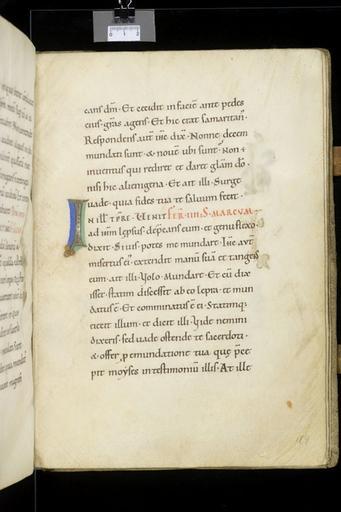 cans dm̄. Et cecidit in faciē ante pedes
eius gr̄as agens. Et hic erat samaritan᷒.
Respondens aut̄ ihc̄ dix̄. Nonne decem
mundati sunt. & nouē ubi sunt? Non ē
inuentus qui rediret et daret glām dō.
nisi hic alienigena. Et ait illi. Surge
uade. quia fides tua te saluum fecit.
IN ILL̄. TP̄RE. UENIT FER. IIII. S. MARCVM.
ad ihm̄ leprosus dep̄cans eum. et genu flexo
dixit. Si uis. potes me mundare. Ihc̄ aut̄
misertus ei᷒. extendit manū suā et tangens
eum. ait illi. Uolo. Mundare. Et cū dix
isset. statim discessit ab eo lepra. et mun
datus ē. Et comminatus ē ei. Statimq;
eiecit illum. et dicit illi. Uide nemini
dixeris. sed uade ostende te sacerdoti.
& offer p emundatione tua quę p̄ce
pit moyses in testimoniū illis. At ille